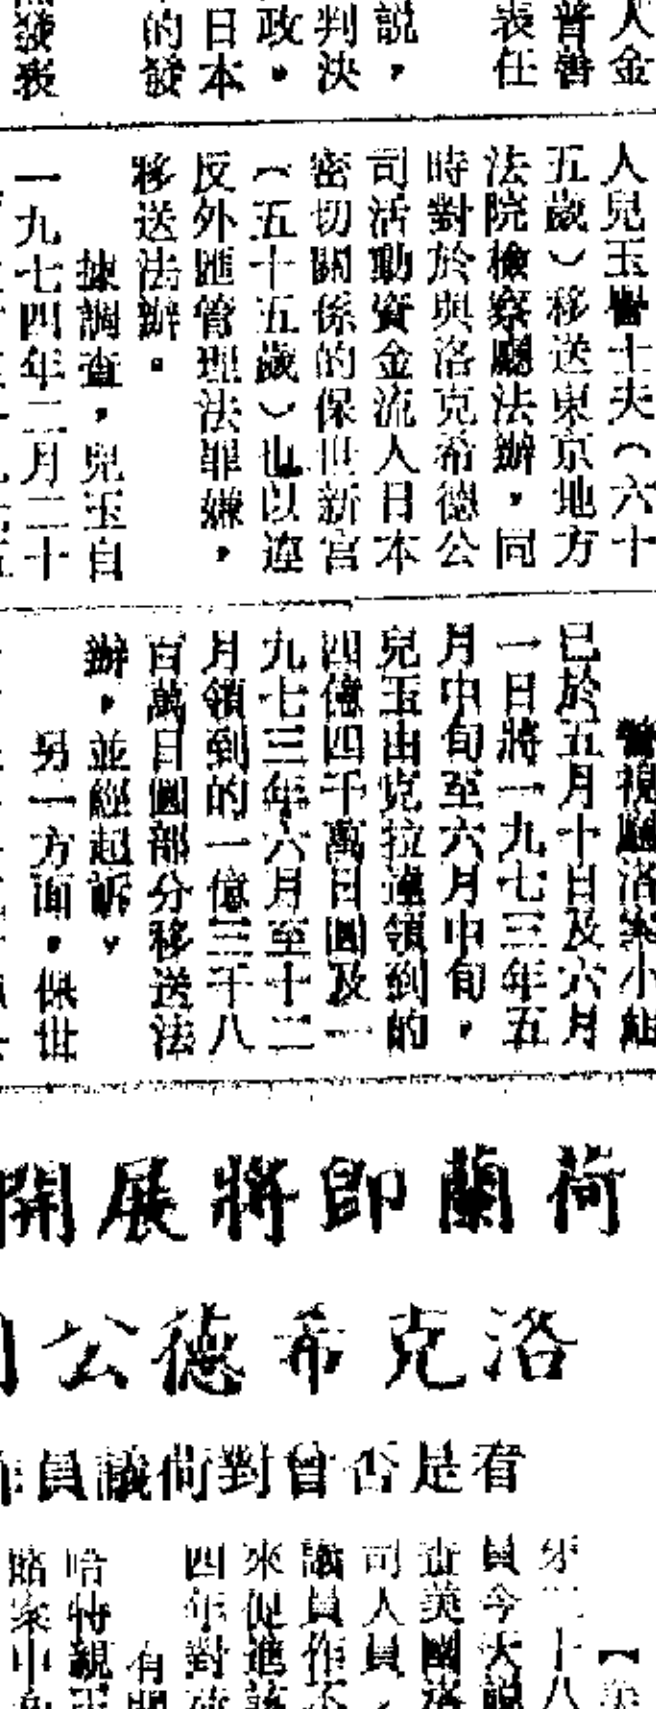 人金
普普
表任
說，
判決
政。
日本
的發
發表
人兒玉譽士夫（六十
五歲）移送東京地方
法院檢察廳法辦，同
時對於與洛克希德公
司活動資金流入日本
密切關係的保世新宮
（五十五歲）也以違
反外匯管理法罪嫌，
移送法辦。
據調查，兒玉自
一九七四年二月二十
警視廳洛案小組
已於五月十日及六月
一日將一九七三年五
月中旬至六月中旬，
兒玉由克拉達領到的
四億四千萬日圓及一
九七三年六月至十二
月領到的一億三千八
百萬日圓部分移送法
辦，並經起訴。
另一方面，保世
荷蘭即將展開
洛克希德公
看是否曾對荷議員作
員今天說
查美國洛
司人員，
議員作不
來促進該
四年對荷
有關
哈特親王
賂案中